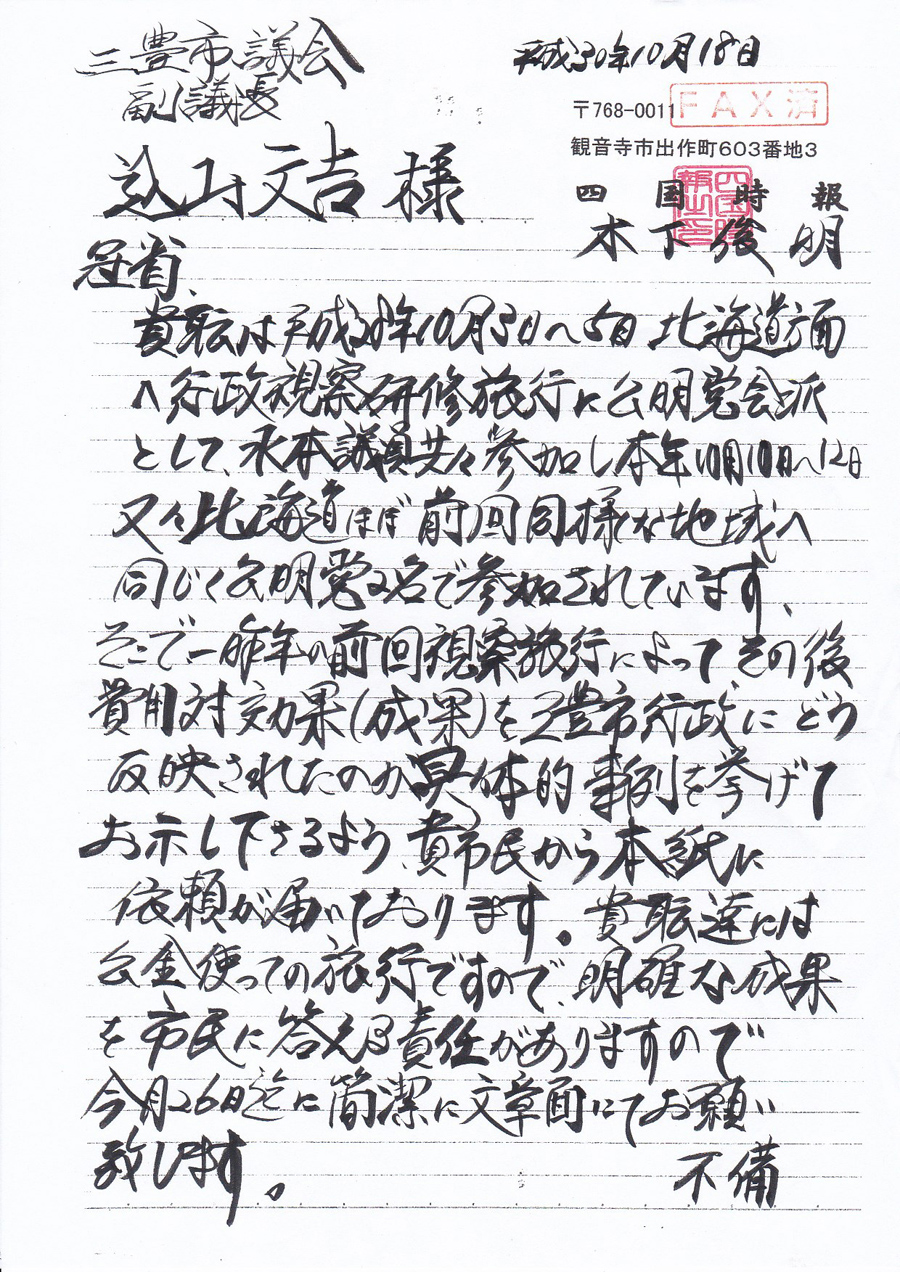 三豊市議会
副議長
込山文吉様
平成30年10月18日
〒768-0011
FAX済
観音寺市出作町603番地3
四国時報
木下俊明
冠省、
貴職は平成28年10月3日〜5日北海道方面
へ行政視察研修旅行に公明党会派
として、水本議員共々参加し本年10月10日〜12日
又々北海道ほぼ前回同様な地域へ
同じく公明党2名で参加されています、
そこで、一昨年の前回視察旅行によってその後
費用対効果(成果)を三豊市行政にどう
反映されたのか、具体的事例を挙げて
お示し下さるよう、貴市民から本紙に
依頼が届いております。貴職達には
公金使っての旅行ですので、明確な成果
を市民に答える責任がありますので
今月26日迄に簡潔に文章面にてお願い
致します。
不備